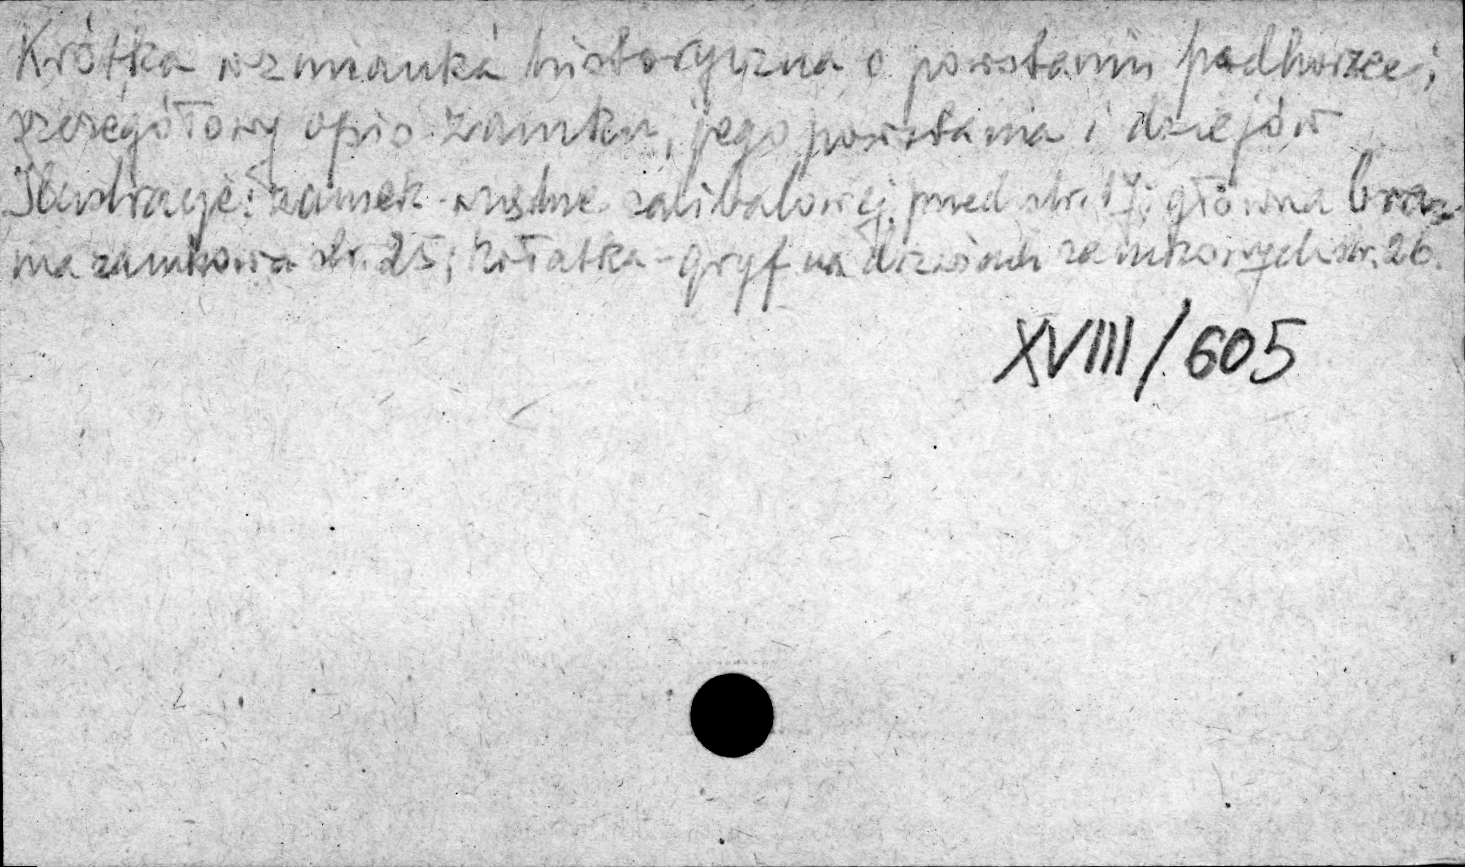 Krótka wzmianka historyczna o powstaniu podhorzec;
szczegółowy opis zamku, jego powstania i dziejów
Ilustracje: zamek - wnętrze sali balowej przed str. 17; główna bra-
ma zamkowa str. 25; kołatka - gryf na drzwiach zamkowych str. 26.
XVIII/605